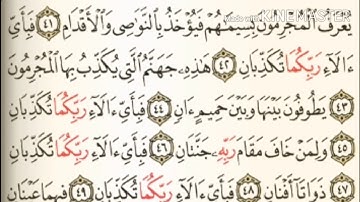 KINEMASTER
يُعْرَفُ ٱلْمُجْرِمُونَ بِسِيمَٰهُمْ فَيُؤْخَذُ بِٱلنَّوَٰصِى وَٱلْأَقْدَامِ ٤١ فَبِأَىِّ
ءَالَآءِ رَبِّكُمَا تُكَذِّبَانِ ٤٢ هَٰذِهِۦ جَهَنَّمُ ٱلَّتِى يُكَذِّبُ بِهَا ٱلْمُجْرِمُونَ
٤٣ يَطُوفُونَ بَيْنَهَا وَبَيْنَ حَمِيمٍ ءَانٍ ٤٤ فَبِأَىِّ ءَالَآءِ رَبِّكُمَا تُكَذِّبَانِ
٤٥ وَلِمَنْ خَافَ مَقَامَ رَبِّهِۦ جَنَّتَانِ ٤٦ فَبِأَىِّ ءَالَآءِ رَبِّكُمَا تُكَذِّبَانِ
٤٧ ذَوَاتَآ أَفْنَانٍ ٤٨ فَبِأَىِّ ءَالَآءِ رَبِّكُمَا تُكَذِّبَانِ ٤٩ فِيهِمَا عَيْنَانِ